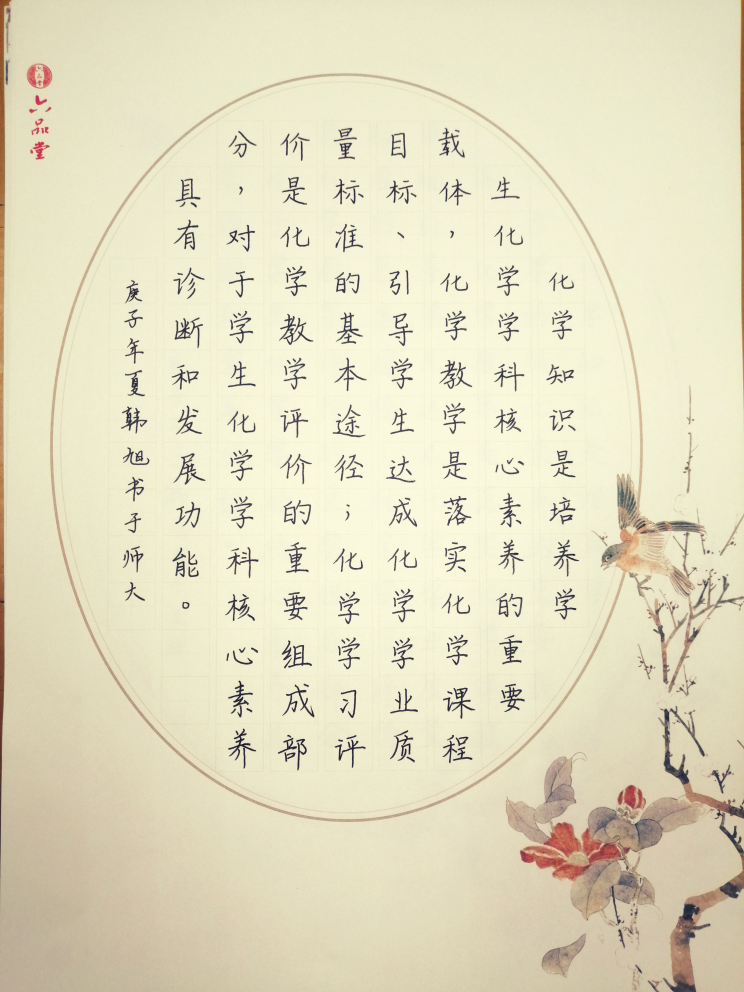 化学知识是培养学
生化学学科核心素养的重要
载体，化学教学是落实化学课程
目标、引导学生达成化学学业质
量标准的基本途径；化学学习评
价是化学教学评价的重要组成部
分，对于学生化学学科核心素养
具有诊断和发展功能。
庚子年夏韩旭书于师大
六品堂